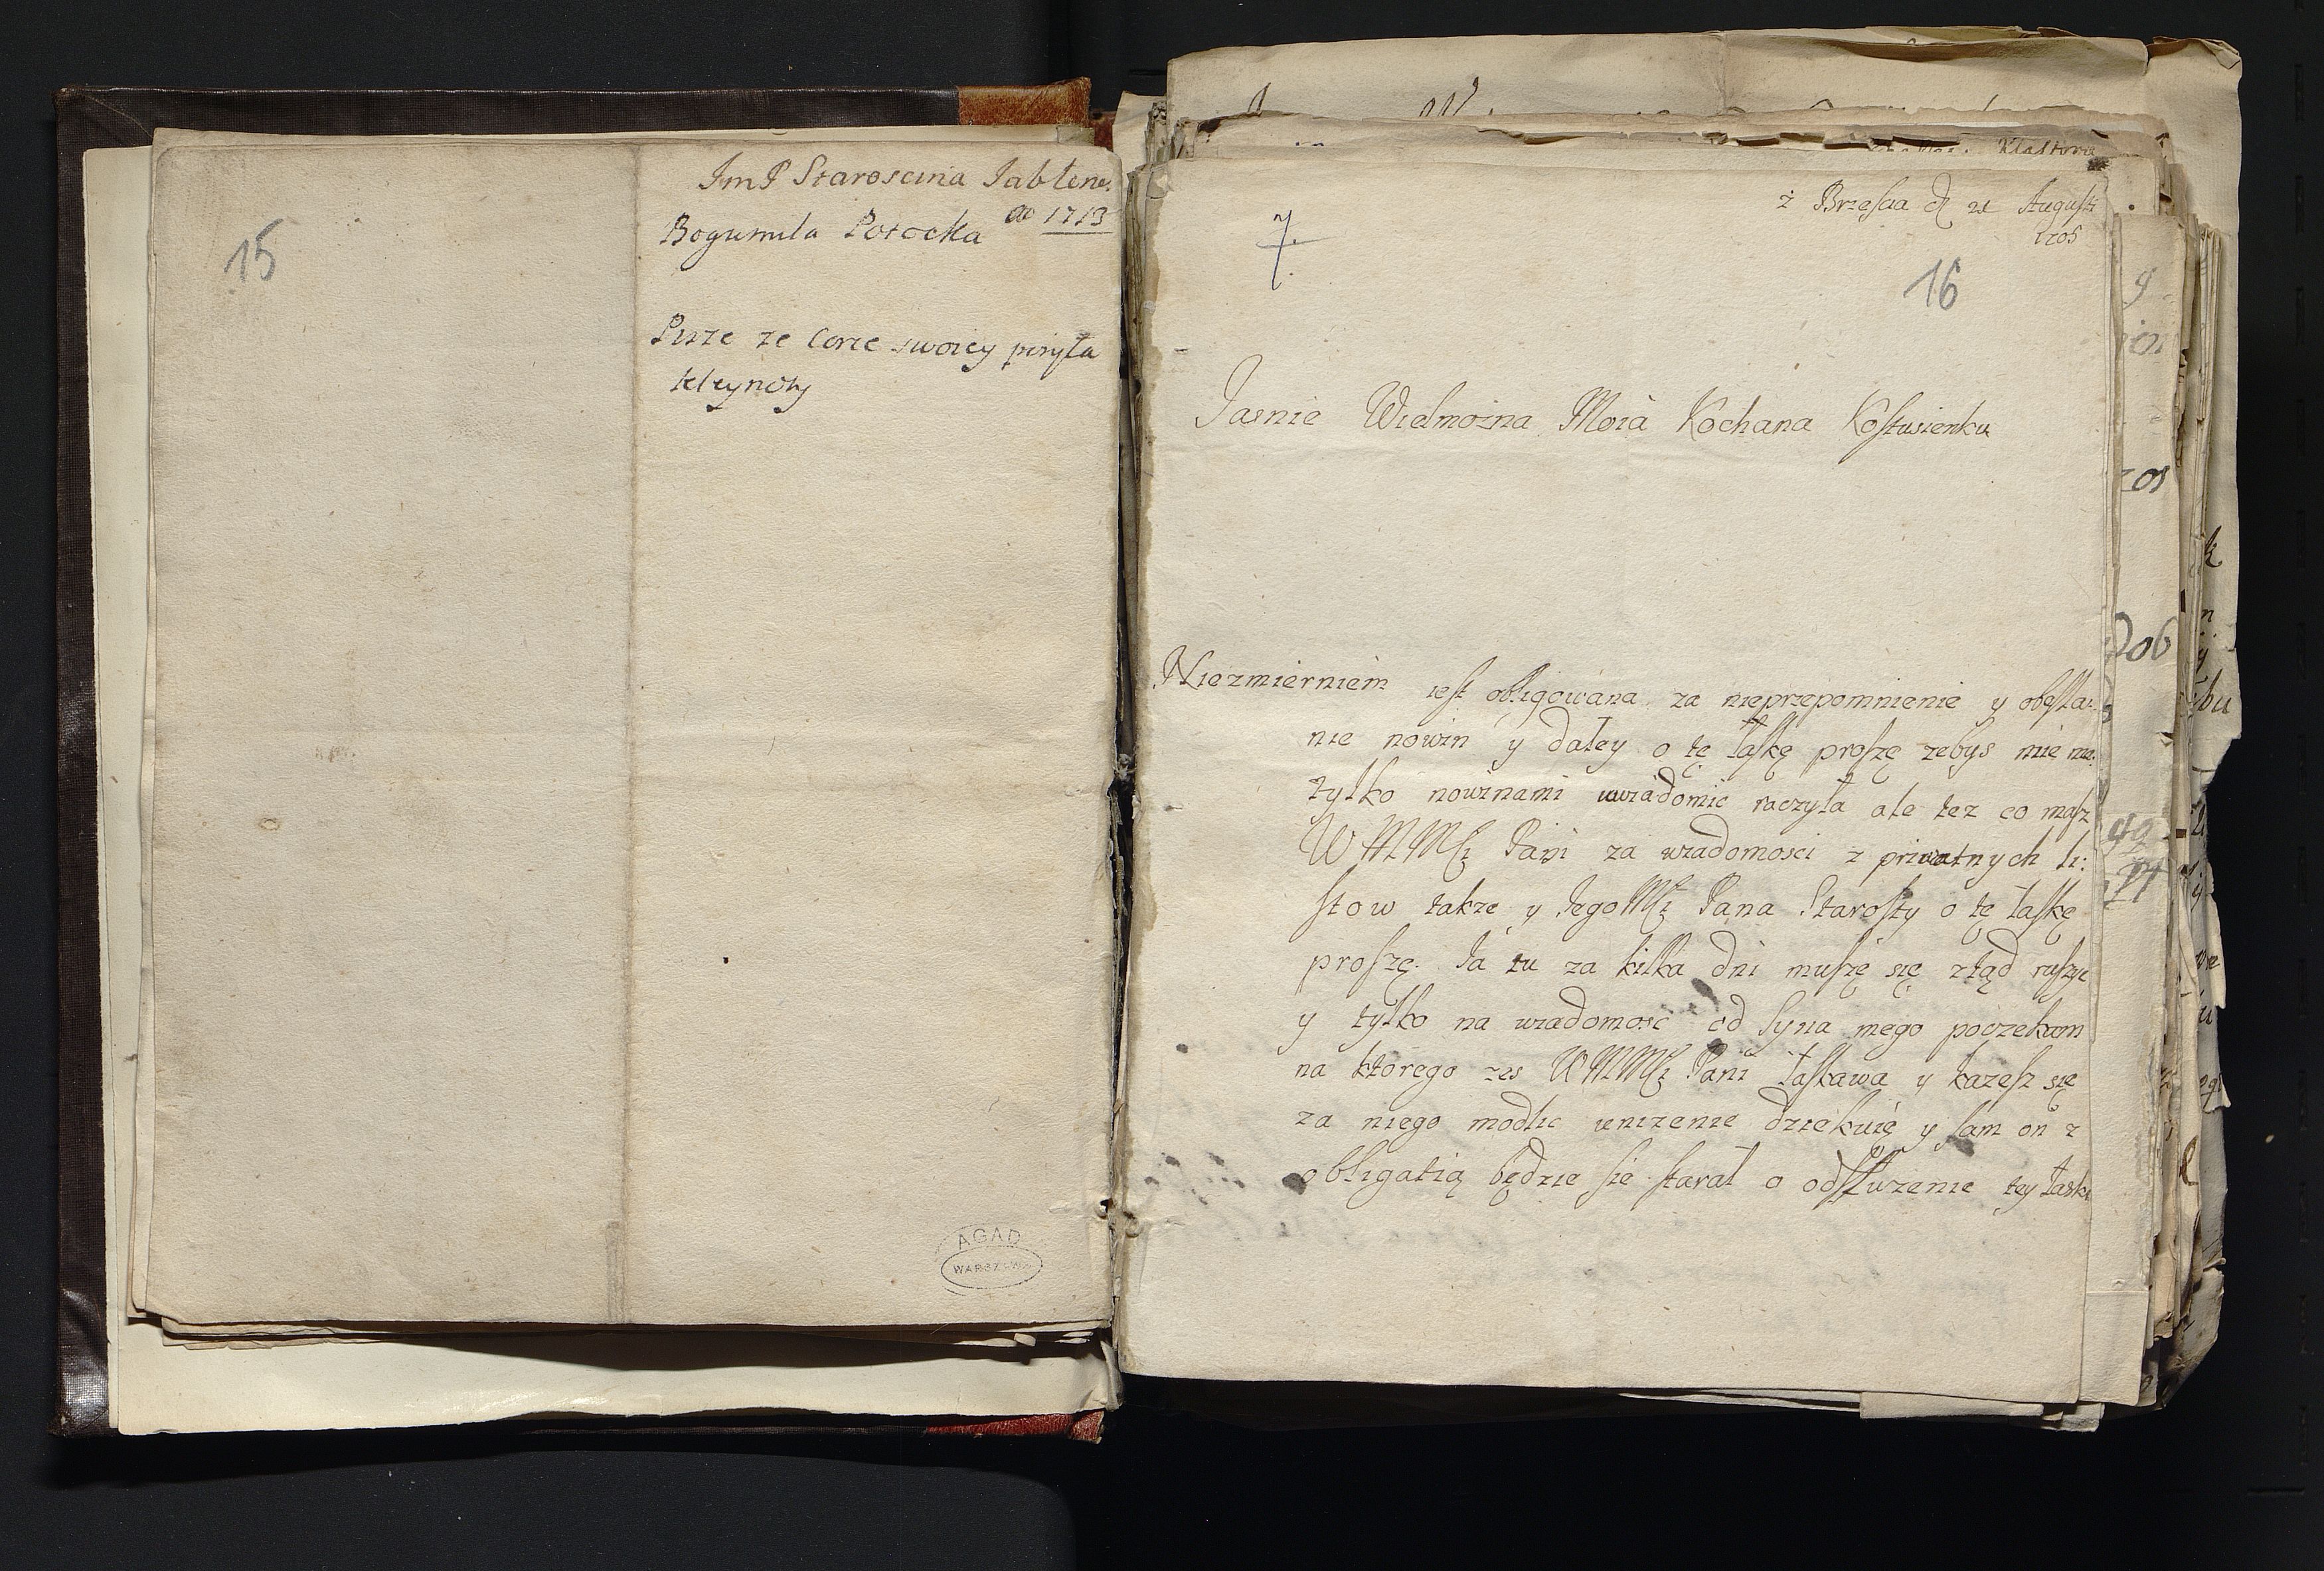 15
ImP Staroscina Jabłono:
Bogumila Potocka ao 1713
Pisze ze Corce swoiey posyła
kleynoty
AGAD
WARSZAWA
7.
z Brzescia d 21 Augusti
1705
16
Jasnie Wielmozna Moia Kochana Kostusienku
Niezmierniem iest obligowana za nieprzepomnienie y obesła:
nie nowin y daley o tę łaskę proszę zebys mie nie:
tylko nowinami uwiadomic raczyła ale tez co masz
WMMMci Pani za wiadomosci z priwatnych li:
stow takze y JegoMci Pana Starosty o tę łaskę
proszę. Ja tu za kilka dni muszę się ztąd ruszyc
y tylko na wiadomosc od Syna mego poczekam
na ktorego zes WMMMci Pani łaskawa y kazesz się
za niego modlic unizenie dziekuię y sam on z
obligatią będzie sie starał o odsłuzenie tey łaski